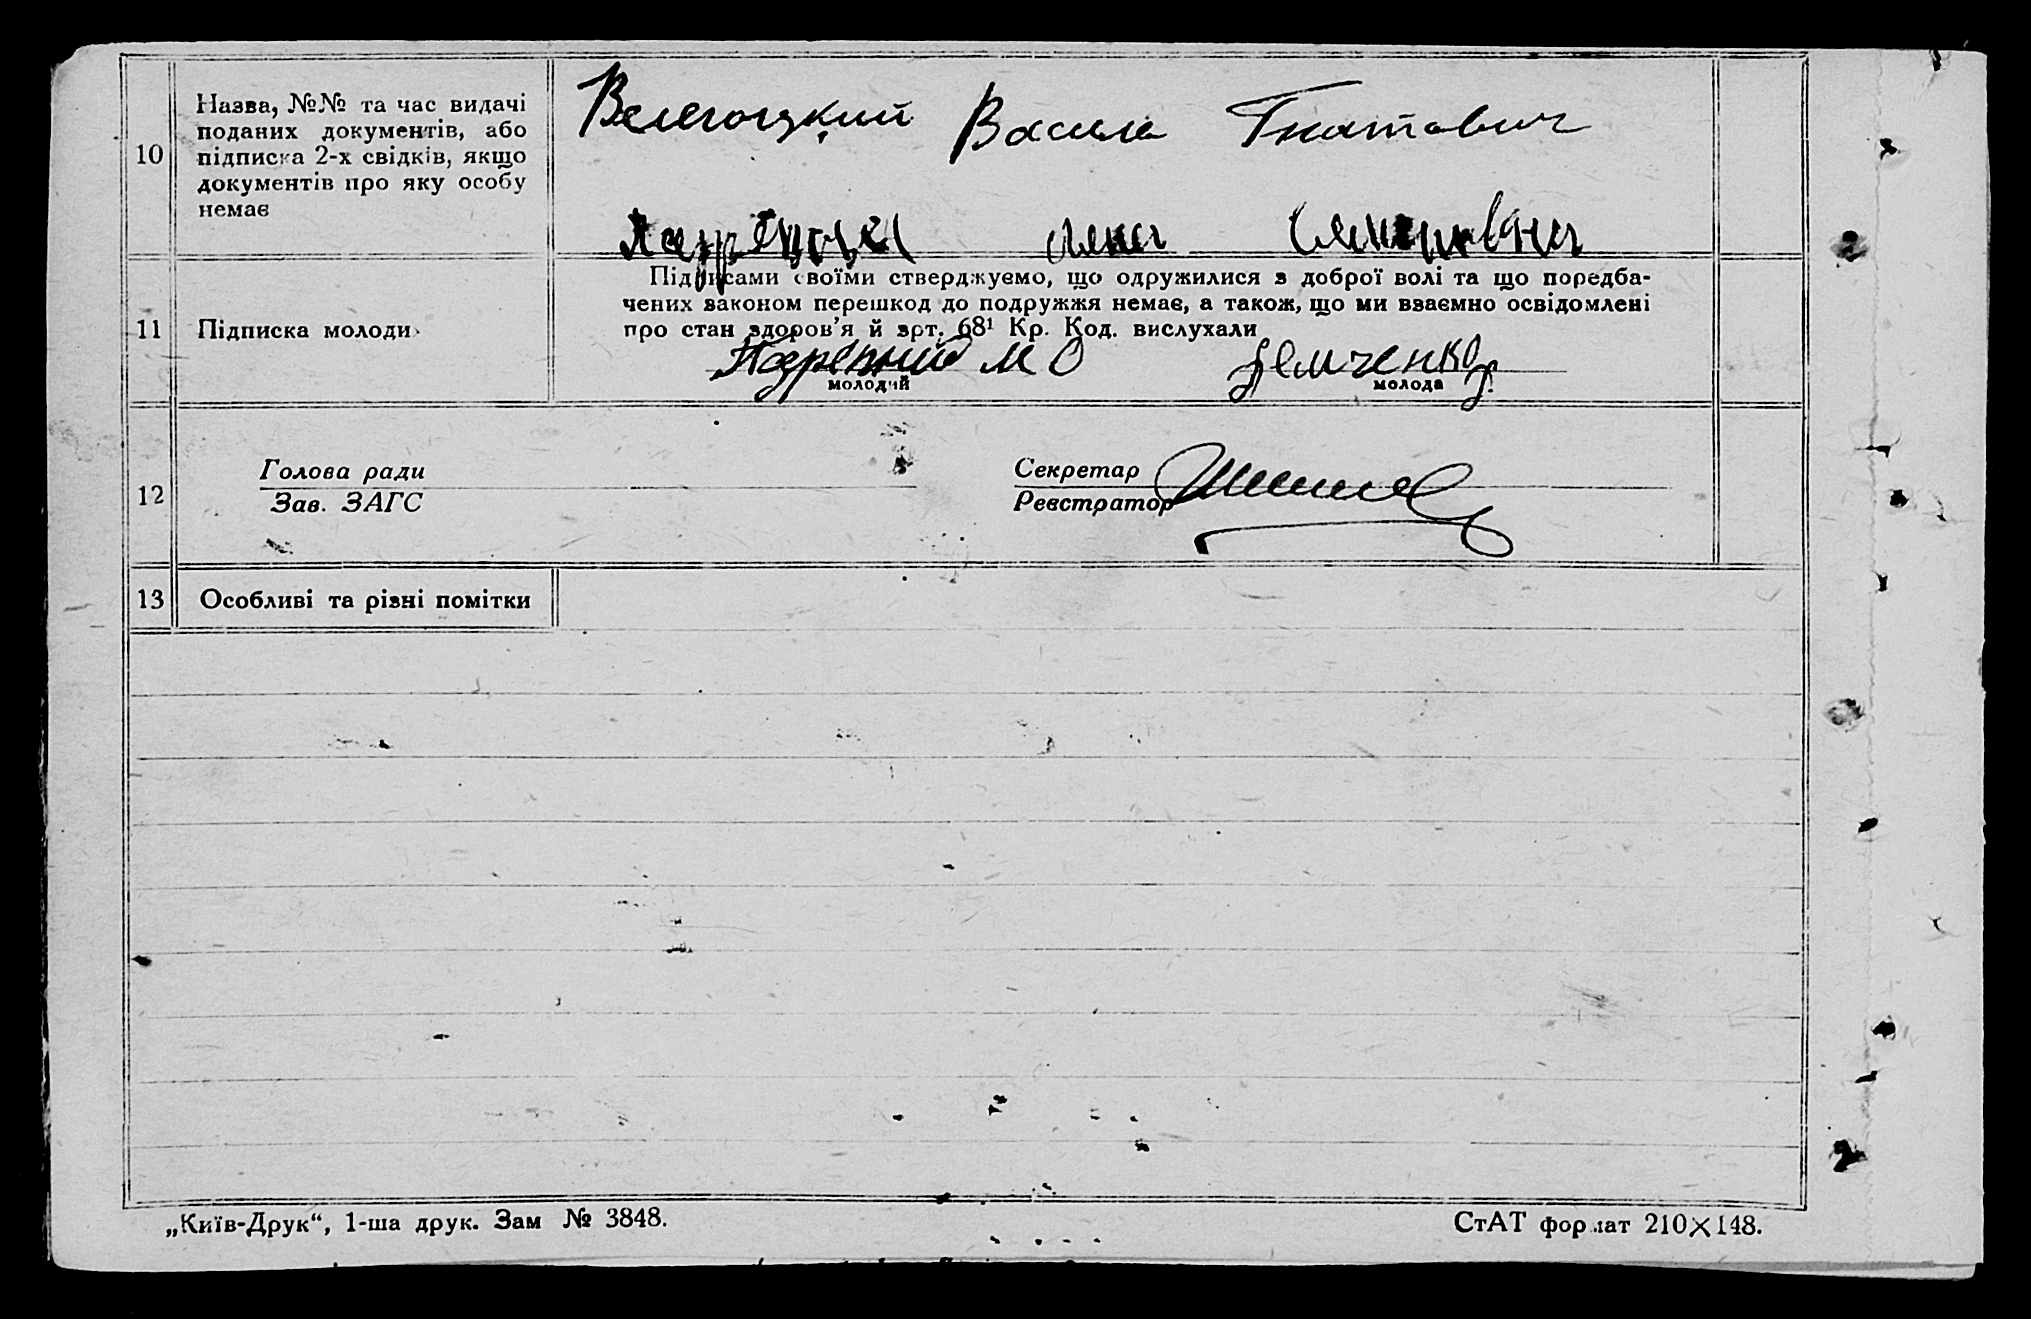 10
Назва, №№ та час видачі
поданих документів, або
підписка 2-х свідків, якщо
документів про яку особу
немає
Велегоцкий Василь Гнатович
11
Підписка молоди
Підписами своїми стверджуємо, що одружилися з доброї волі та що поредба-
чених законом перешкод до подружжя немає, а також, що ми взаємно освідомлені
про стан здоров'я й арт. 68¹ Кр. Код. вислухали
М О Демченко
молодий молода
12
Голова ради
Зав. ЗАГС
Секретар
Реєстратор
13
Особливі та різні помітки
„Київ-Друк“, 1-ша друк. Зам № 3848.
СтАТ формат 210×148.